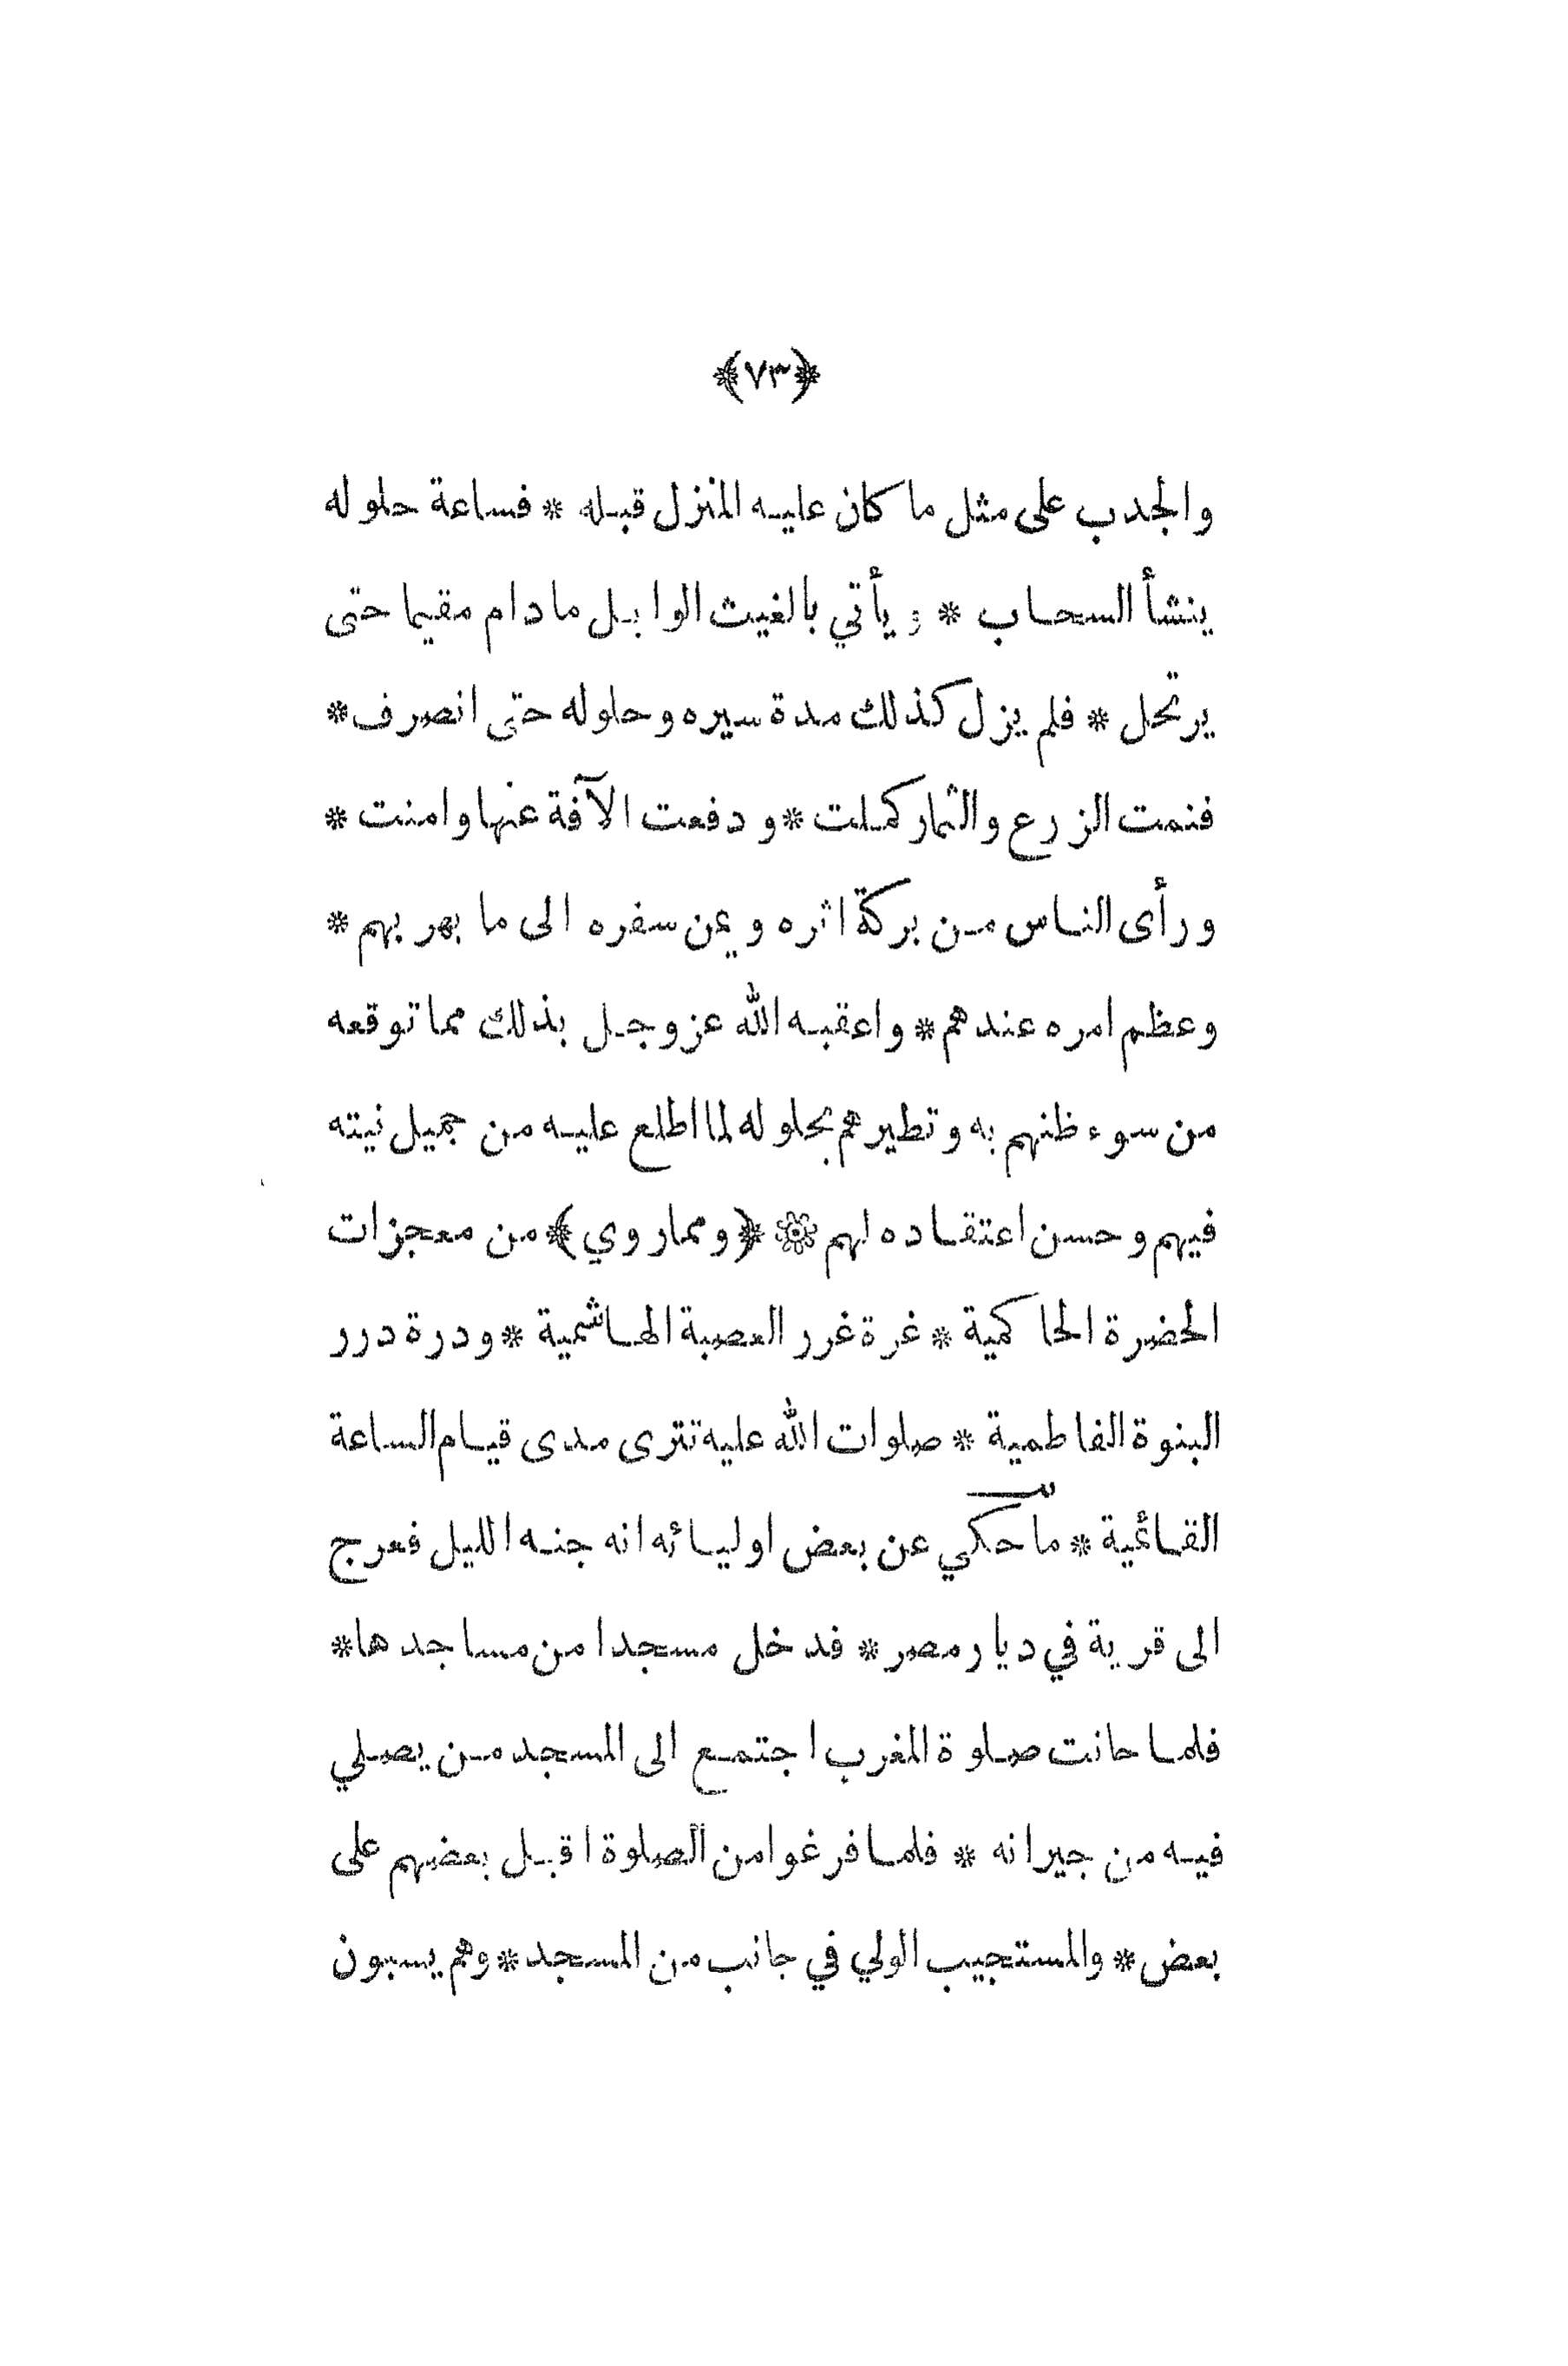 ﴿٧٣﴾
والجدب على مثل ما كان عليه المنزل قبله * فساعة حلوله
ينشأ السحاب * ويأتي بالغيث الوابل مادام مقيما حتى
يرتحل * فلم يزل كذلك مدة سيره وحلوله حتى انصرف *
فنمت الزرع والثمار كملت * ودفعت الآفة عنها وامنت *
ورأى الناس من بركة اثره ويمن سفره الى ما بهر بهم *
وعظم امره عندهم * واعقبه الله عز وجل بذلك مما توقعه
من سوء ظنهم به وتطيرهم بحلوله لما اطلع عليه من جميل نيته
فيهم وحسن اعتقاده لهم ۞ ﴿ومما روي﴾ من معجزات
الحضرة الحاكمية * غرة غرر العصبة الهاشمية * ودرة درر
البنوة الفاطمية * صلوات الله عليه تترى مدى قيام الساعة
القائمية * ما حكي عن بعض اوليائه انه جنه الليل فعرج
الى قرية في ديار مصر * فدخل مسجدا من مساجدها *
فلما حانت صلوة المغرب اجتمع الى المسجد من يصلي
فيه من جيرانه * فلما فرغوا من الصلوة اقبل بعضهم على
بعض * والمستجيب الولي في جانب من المسجد * وهم يسبون